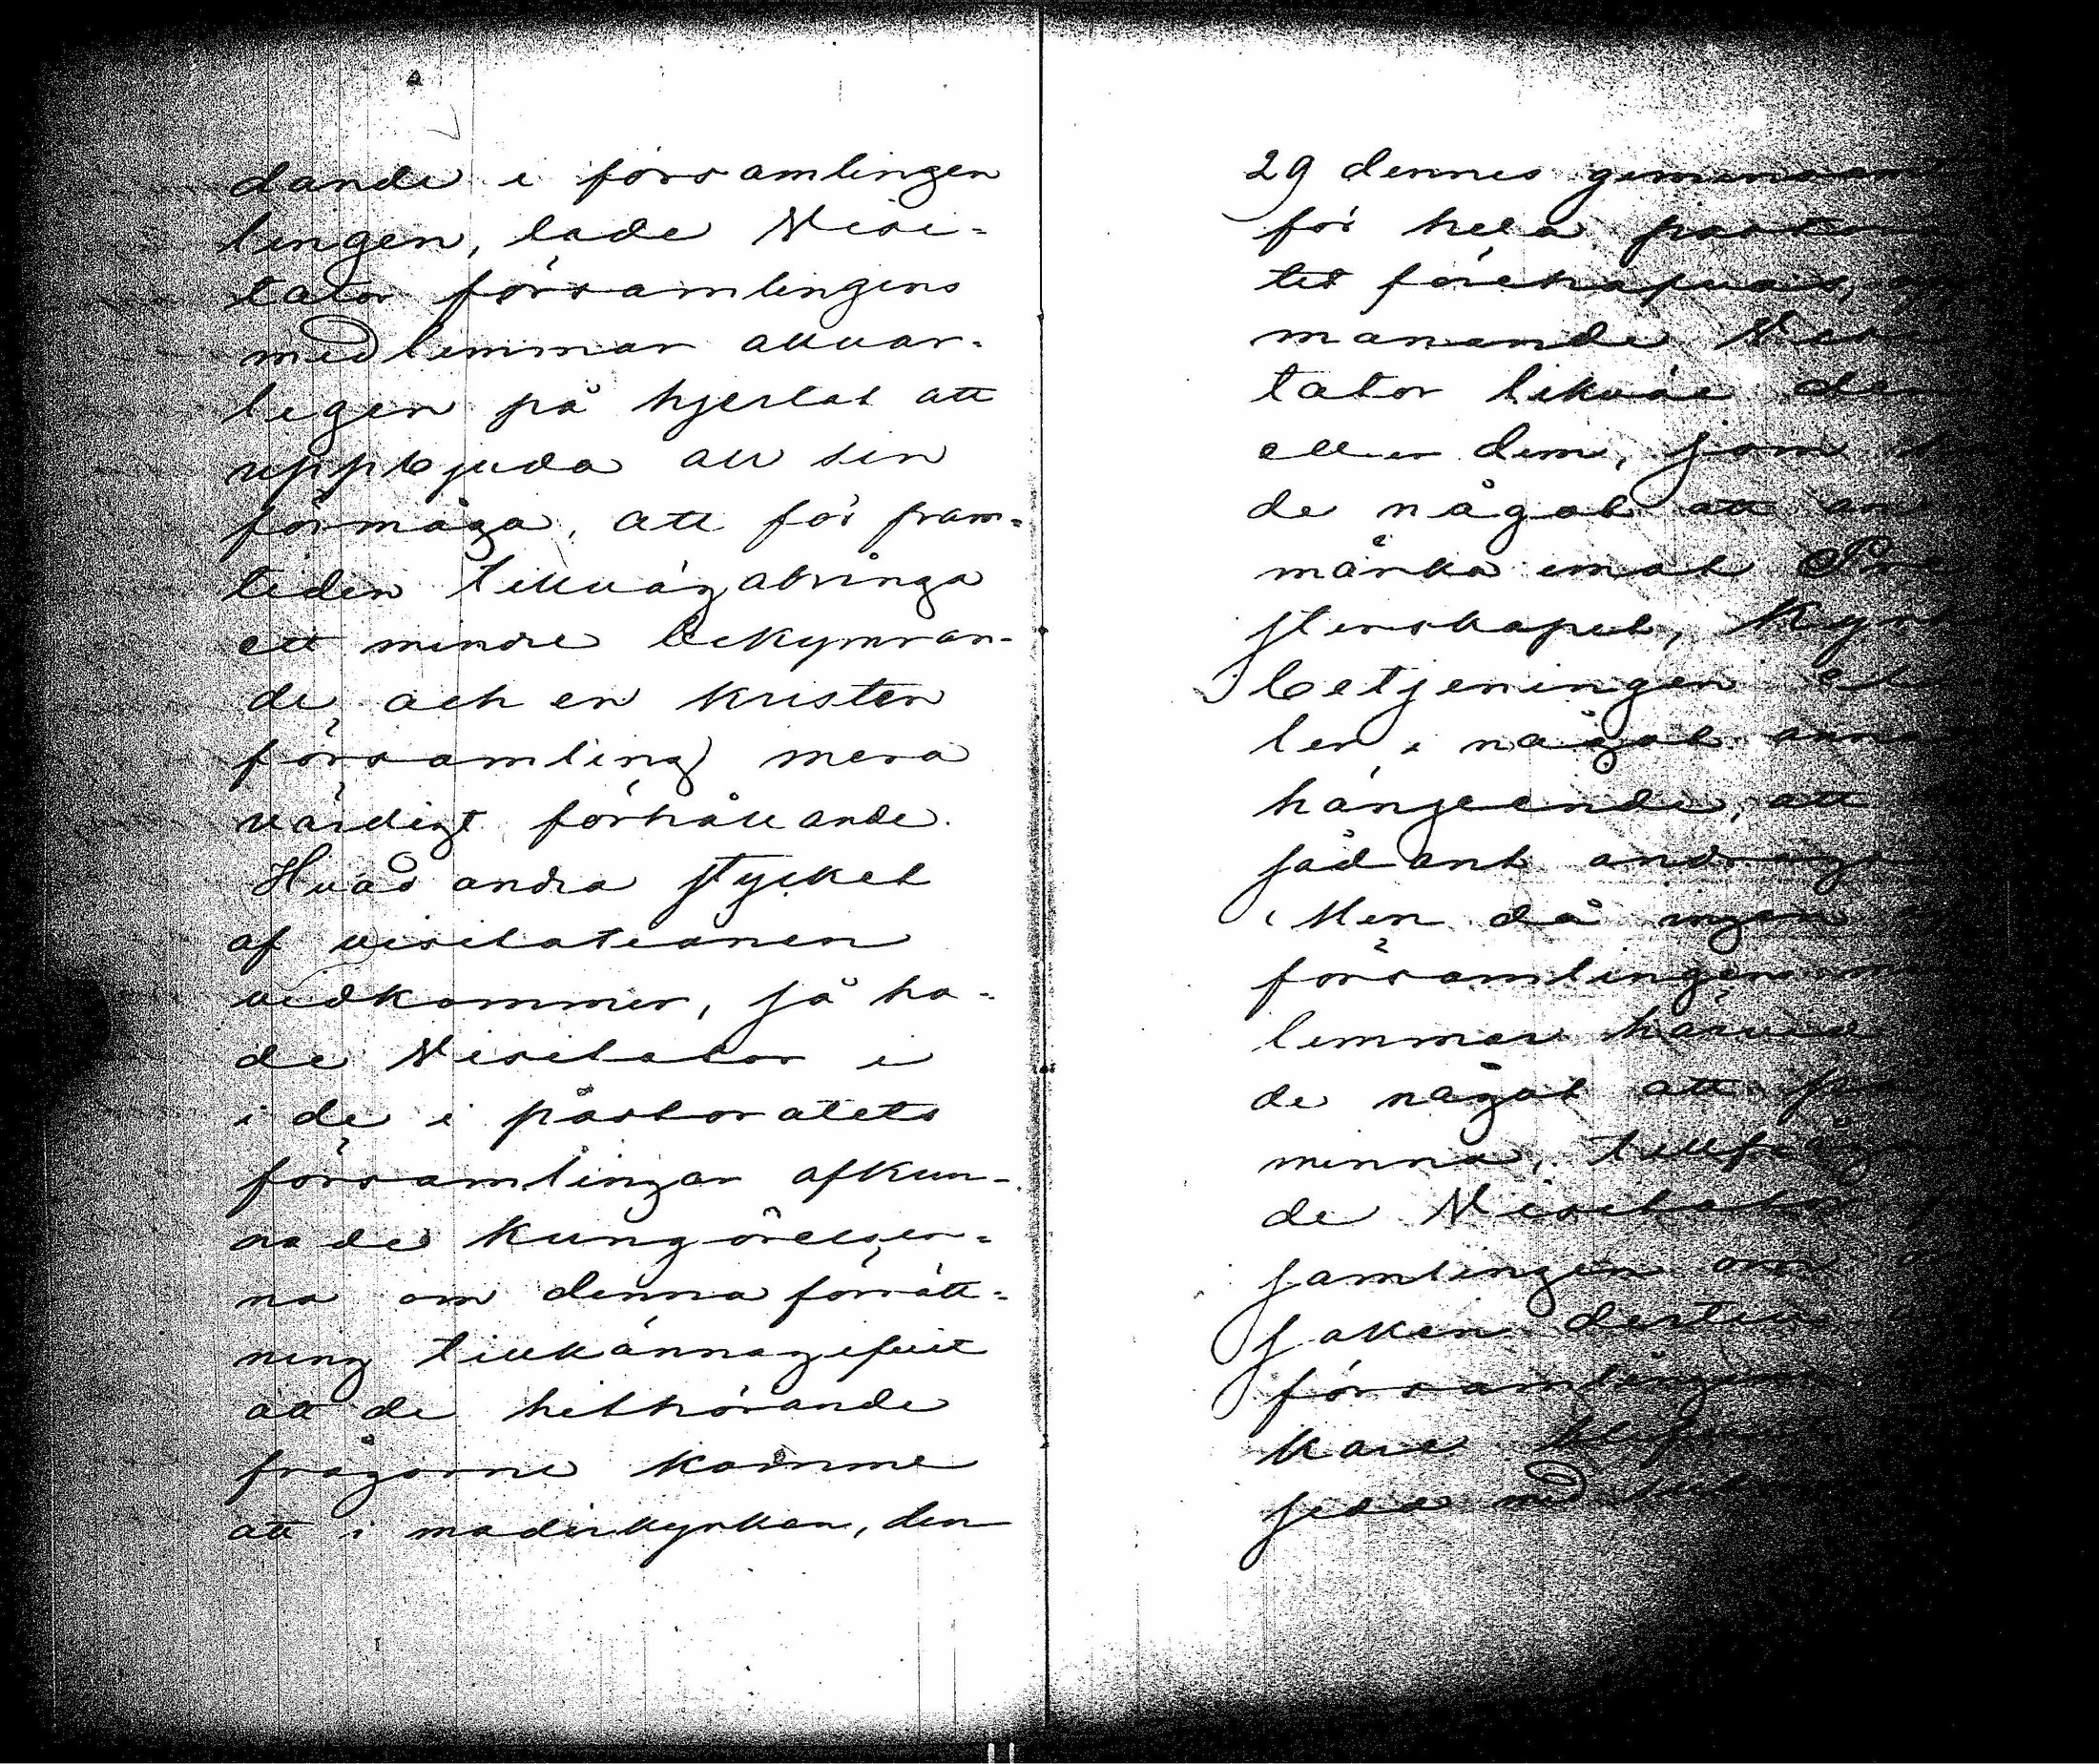 dande i församlingen
lingen, lade Visi-
tator församlingens
medlemmar allvar-
ligen på hjertat att
uppbjuda all sin
förmåga, att för fram-
tiden tillvägabringa
ett mindre bekymran-
de, och en kristen
församling mera
värdigt förhållande.
Hvad andra stycket
af visitationen
vidkommer, så ha-
de Visitator i
i de i pastoratets
församlingar afkun-
nade kungörelser-
na om denna förrätt-
ning tillkännagifvit
att de hithörande
frågorne komme
att i moderkyrkan, den
29 dennes gemensamt
för hela pastora
tet förehafvas,
manande Visi
tator likväl den
eller dem, som
de något att an
märka emot Pre
sterskapet, Kyrk
betjeningen el
ler i något annat
hänseende, att
sådant andraga
Men då ingen
församlingens
lemmar
de något att på
minna, tillfråg
de Visitator
samlingen om
saken
församlingens
kare
seda med